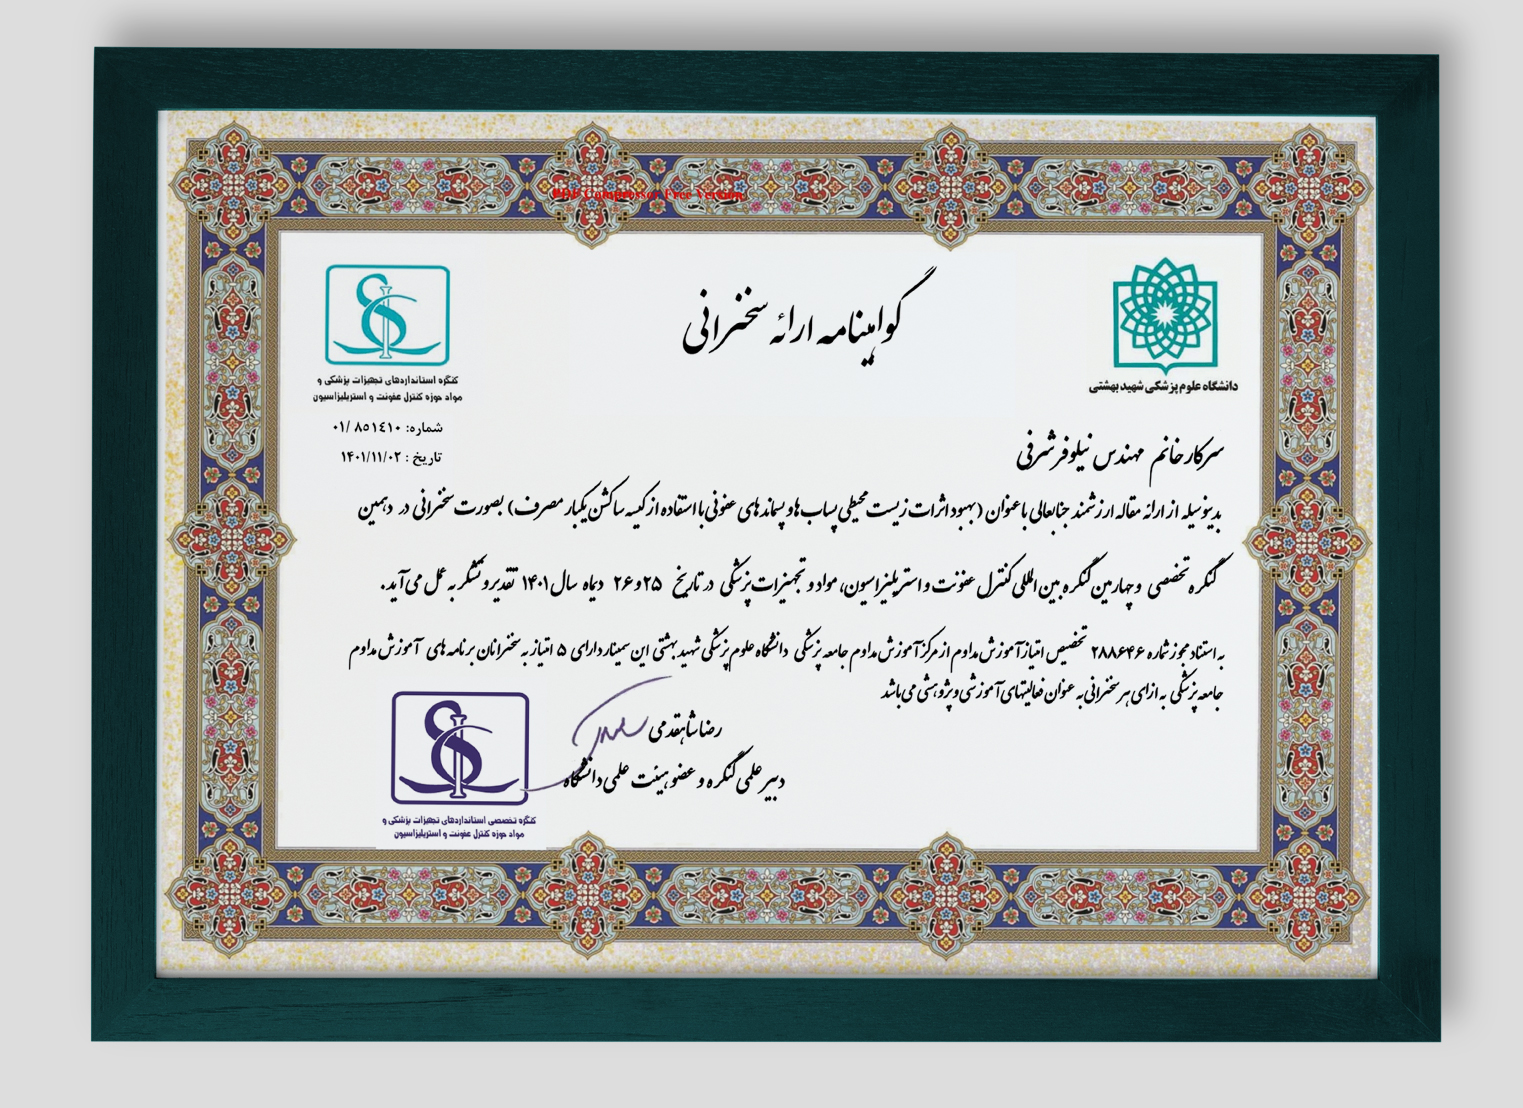 PDF Compressor Free Version
گواهینامه ارائه سخنرانی
دانشگاه علوم پزشکی شهید بهشتی
کنگره استانداردهای تجهیزات پزشکی و
مواد حوزه کنترل عفونت و استریلیزاسیون
شماره: ٨٥١٤١٠ /٠١
تاریخ : ۱۴۰۱/۱۱/۰۲
سرکار خانم مهندس نیلوفر شرفی
بدینوسیله از ارائه مقاله ارزشمند جنابعالی با عنوان (بهبود اثرات زیست محیطی پساب ها و پسماند های عفونی با استفاده از کیسه ساکشن یکبار مصرف) بصورت سخنرانی در دهمین
کنگره تخصصی و چهارمین کنگره بین المللی کنترل عفونت و استریلیزاسیون، مواد و تجهیزات پزشکی در تاریخ ۲۵ و ۲۶ دیماه سال ۱۴۰۱ تقدیر و تشکر به عمل می آید.
به استناد مجوز شماره ۲۸۸۶۴۶ تخصیص امتیاز آموزش مداوم از مرکز آموزش مداوم جامعه پزشکی دانشگاه علوم پزشکی شهید بهشتی این سمینار دارای ۵ امتیاز به سخنرانان برنامه های آموزش مداوم
جامعه پزشکی به ازای هر سخنرانی به عنوان فعالیتهای آموزشی و پژوهشی می باشد
رضا شاهقدمی
دبیر علمی کنگره و عضو هیئت علمی دانشگاه
کنگره تخصصی استانداردهای تجهیزات پزشکی و
مواد حوزه کنترل عفونت و استریلیزاسیون